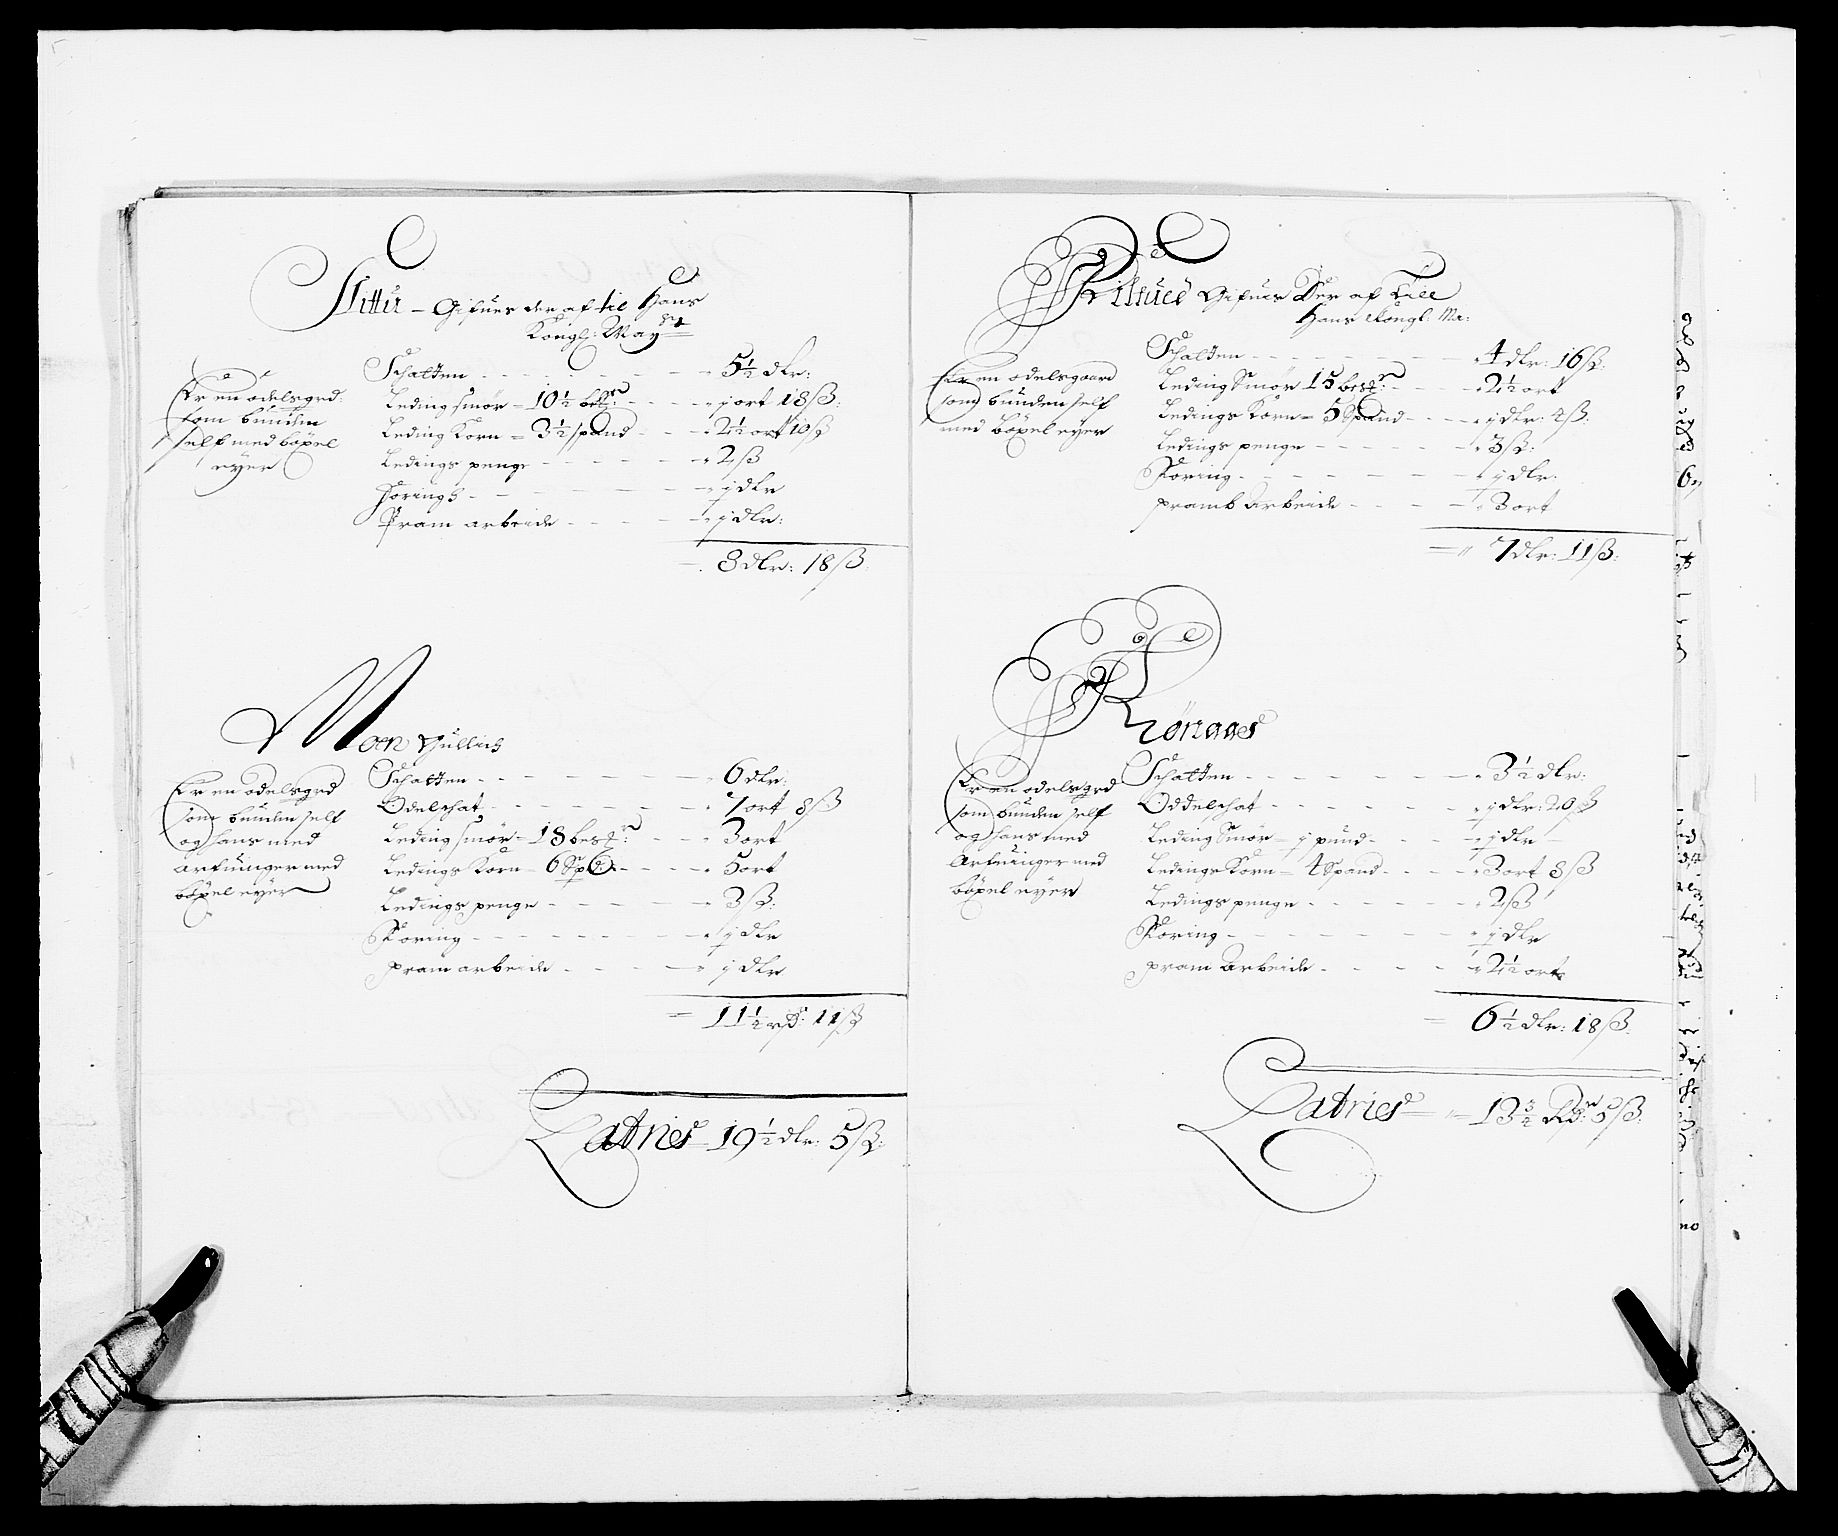 Sittu - Gifues der af til Hans
Kongl: Mayst
Er en odelsgrd:
som bunden
self med böxel
eyer
Schatten - - - - 5½ dlr:
Leding smör = 10½ - - j ort 18 ß:
Leding Korn = 3½ spand - - 2½ ort 10 ß
Ledings penge - - - 2 ß
Foringh - - - - j dlr
Pram arbeide - - - j dlr:
8 dlr: 18 ß:
Moen
Er en odelsgrd
som bunden self
og hans med
arfuinger med
böxel eyer
Schatten - - - - 6 dlr:
Odelschat - - - - 1 ort 8 ß
Leding smör = 18 - - 3 ort
Ledings Korn = 6 Spd: - - 5 ort
Ledings penge - - - 3 ß:
Foring - - - - j dlr
pram arbeide - - - j dlr
= 11½ rd: 11 ß
Latries 19½ dlr: 5 ß:
Gifues Der af Till
Hans Kongl: Ma:
Er en odelsgaard
som bunden self
med böxel eyer
Schatten - - - - 4 dlr: 16 ß:
Leding Smör 15 - - 2½ ort
Ledings Korn = 5 Spand - - j dlr: 4 ß:
Ledings penge - - - 3 ß:
Foring - - - - j dlr:
pramb arbeide - - - 3 ort
= 7 dlr: 11 ß:
Rönaaes
Er en odelsgrd
som bunden self
og hans med
Arfuinger med
böxel eyer
Schatten - - - - 3½ dlr:
Oddelschat - - - - j dlr: 20 ß
Leding Smör = j pund - - j dlr -
Ledings Korn = 4 Spand - - 3 ort 8 ß
Ledings penge - - - 2 ß
Foring - - - - j dlr
pram Arbeide - - - 2½ ort
= 6½ dlr: 18 ß:
Latries = 13 Rdr: 5 ß: